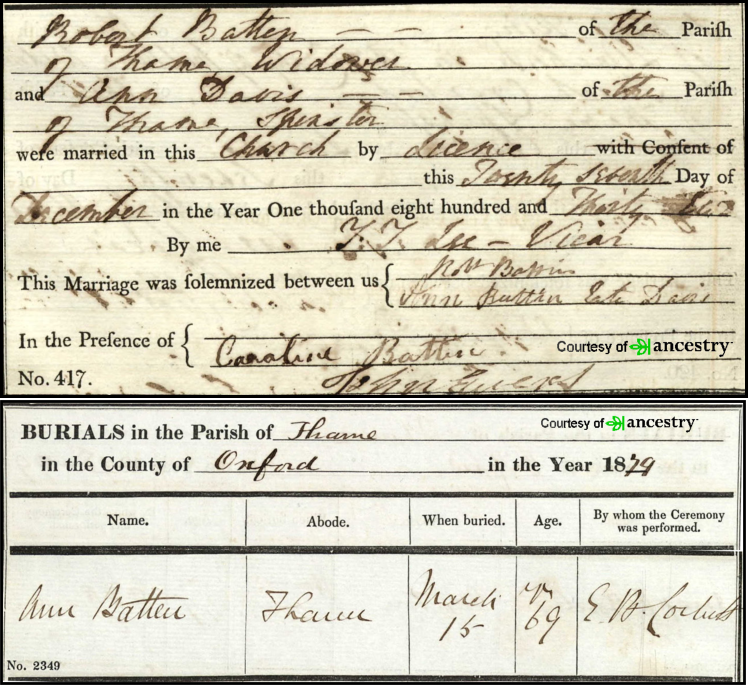 Robert Batten — — of the Parish
of Thame Widower
and Ann Davis — — of the Parish
of Thame, Spinster
were married in this Church by Licence with Consent of
this Twenty seventh Day of
December in the Year One thouſand eight hundred and Thirty
By me T. T. Lee – Vicar
This Marriage was ſolemnized between us { Robt Batten
Ann Batten late Davis
In the Preſence of {
Caroline Batten
Courtesy of ancestry
No. 417. John
Courtesy of ancestry
BURIALS in the Parish of Thame
in the County of Oxford in the Year 1879
Name. Abode. When buried. Age. By whom the Ceremony was performed.
Ann Batten Thame March 15 69 E. B. Corbett
No. 2349